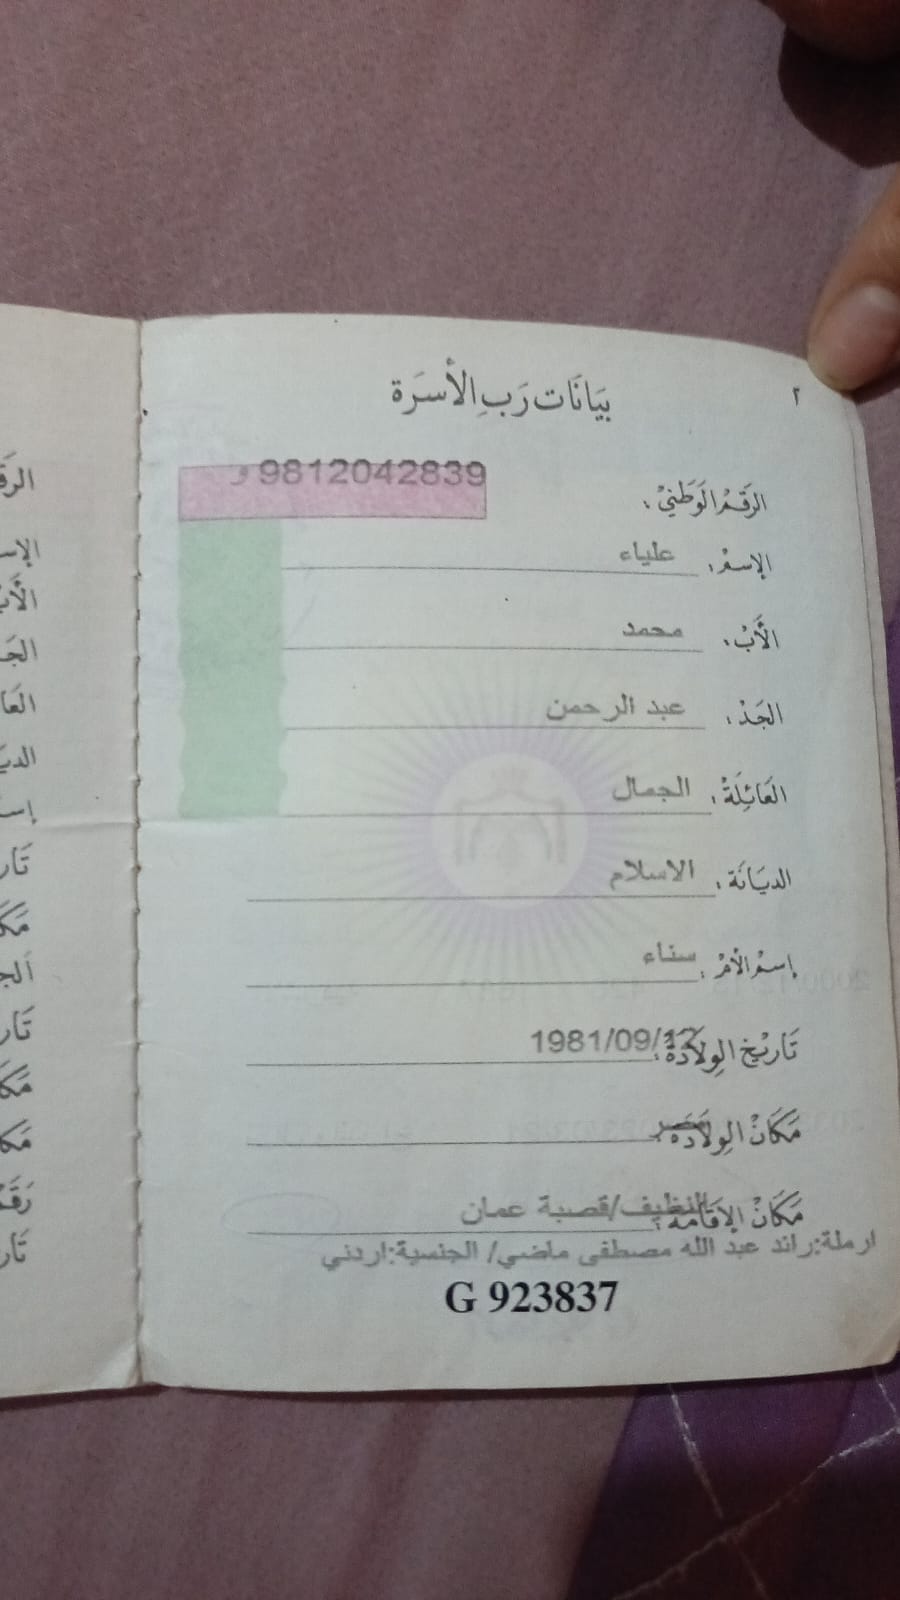 ٢
بَيَانَات رَبِ الأُسرَة
الرَقَمُ الوَطَنِيْ : 9812042839
الإسمْ : علياء
الأَبْ : محمد
الجَدْ : عبد الرحمن
العَائِلَةْ : الجمال
الديَانَة : الاسلام
إسمُ الأُمْ : سناء
تَاريْخ الوِلاَدَة : 1981/09/
مَكَانْ الوِلاَدَة : مصر
مَكَانْ الإقَامَة : النظيف/قصبة عمان
ارملة:رائد عبد الله مصطفى ماضي/ الجنسية:اردني
G 923837